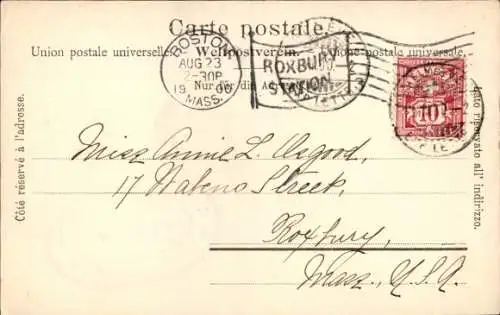 Carte postale.
Union postale universelle. Weltpostverein. Unione postale universale.
Nur für die Ad
BOSTON
AUG 23
2-30P
1900
MASS.
ROXBURY
STATION
10
Côté réservé à l'adresse.
lato riservato all' indirizzo.
Miss Annie L. Osgood,
17 Wabeno Street,
Roxbury,
Mass. U.S.A.